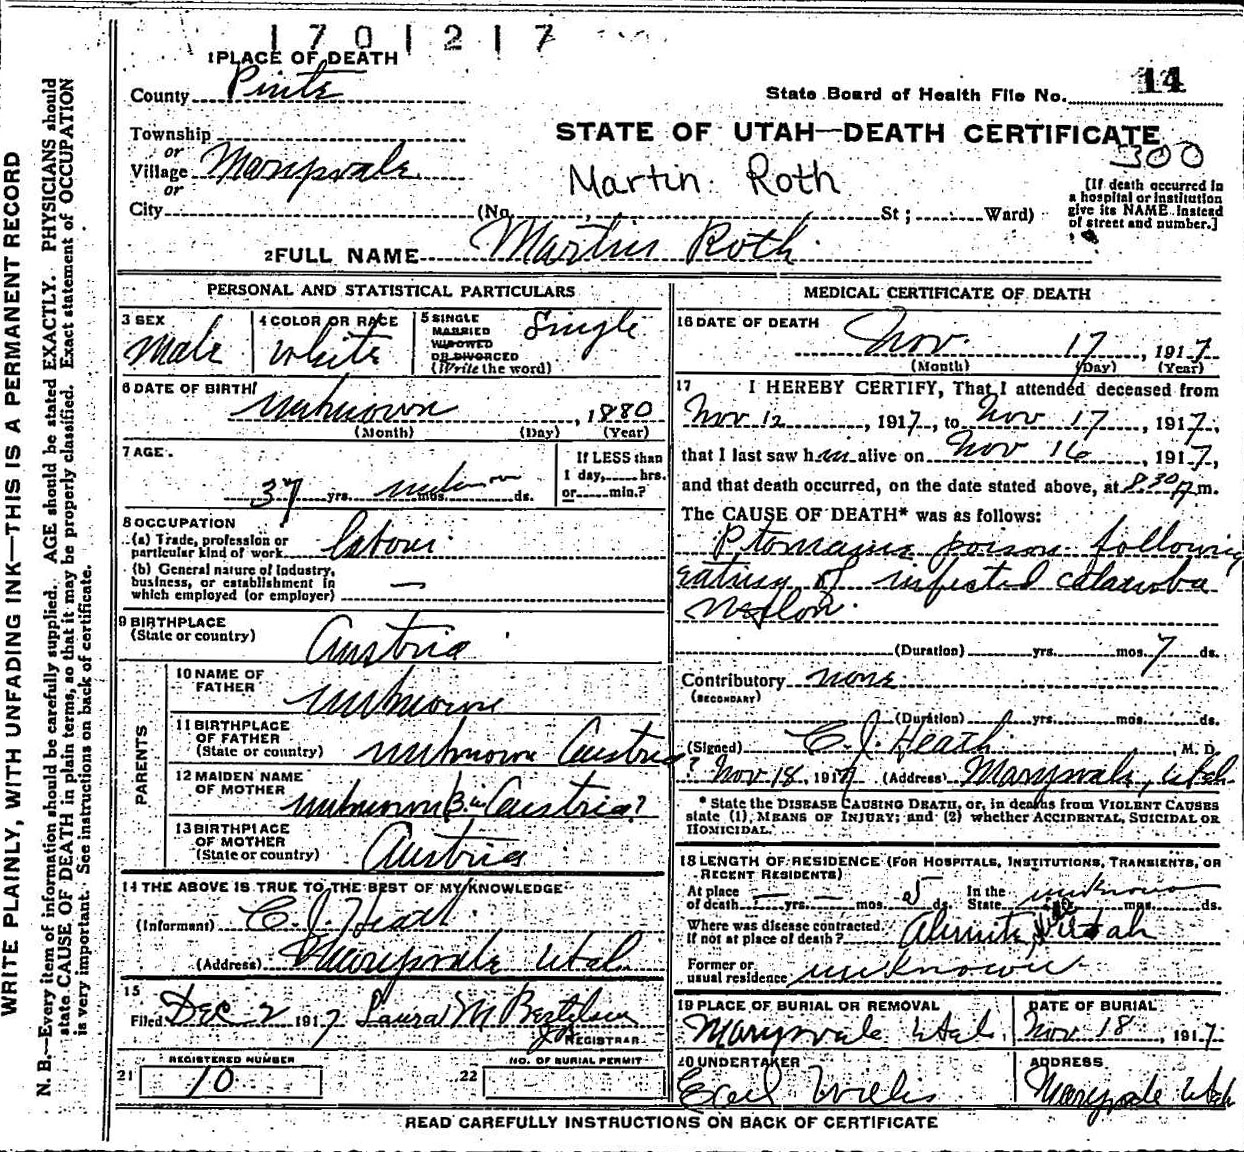 1701217
1 PLACE OF DEATH
County Piute
State Board of Health File No. 14
Township
or
Village Marysvale
or
City
STATE OF UTAH—DEATH CERTIFICATE
300
Martin Roth
(No. , St; Ward)
[If death occurred in
a hospital or institution
give its NAME instead
of street and number.]
2 FULL NAME Martin Roth
PERSONAL AND STATISTICAL PARTICULARS
3 SEX
Male
4 COLOR OR RACE
White
5 SINGLE
MARRIED
WIDOWED
OR DIVORCED
(Write the word)
Single
6 DATE OF BIRTH
unknown , 1880
(Month) (Day) (Year)
7 AGE
37 yrs. unknown mos. ds.
If LESS than
1 day, hrs.
or min.?
8 OCCUPATION
(a) Trade, profession or
particular kind of work labour
(b) General nature of industry,
business, or establishment in
which employed (or employer) —
9 BIRTHPLACE
(State or country)
Austria
PARENTS
10 NAME OF
FATHER
unknown
11 BIRTHPLACE
OF FATHER
(State or country)
unknown Austria?
12 MAIDEN NAME
OF MOTHER
unknown B. in Austria?
13 BIRTHPLACE
OF MOTHER
(State or country)
Austria
14 THE ABOVE IS TRUE TO THE BEST OF MY KNOWLEDGE
(Informant) C. J. Heath
(Address) Marysvale Utah
15
Filed Dec 2 1917 Laura M Bertelsen
REGISTRAR
REGISTERED NUMBER
21 10
NO. OF BURIAL PERMIT
22
MEDICAL CERTIFICATE OF DEATH
16 DATE OF DEATH
Nov. 17 , 1917
(Month) (Day) (Year)
17 I HEREBY CERTIFY, That I attended deceased from
Nov 12 , 1917, to Nov 17 , 1917,
that I last saw him alive on Nov 16 , 1917,
and that death occurred, on the date stated above, at 8.30 m.
The CAUSE OF DEATH* was as follows:
Ptomaine poison following
eating of infected
Melon.
(Duration) yrs. mos. 7 ds.
Contributory none
(SECONDARY)
(Duration) yrs. mos. ds.
(Signed) C. J. Heath , M. D.
Nov 18 1917 (Address) Marysvale, Utah
* State the DISEASE CAUSING DEATH, or, in deaths from VIOLENT CAUSES
state (1), MEANS OF INJURY; and (2) whether ACCIDENTAL, SUICIDAL OR
HOMICIDAL.
18 LENGTH OF RESIDENCE (FOR HOSPITALS, INSTITUTIONS, TRANSIENTS, OR
RECENT RESIDENTS)
At place
of death — yrs. — mos. 5 ds.
In the
State unknown mos. ds.
Where was disease contracted,
if not at place of death? Alunite, Utah
Former or
usual residence unknown
19 PLACE OF BURIAL OR REMOVAL
Marysvale Utah.
DATE OF BURIAL
Nov 18 , 1917
20 UNDERTAKER
Willis
ADDRESS
Marysvale Utah
READ CAREFULLY INSTRUCTIONS ON BACK OF CERTIFICATE
WRITE PLAINLY, WITH UNFADING INK—THIS IS A PERMANENT RECORD
N. B.—Every item of information should be carefully supplied. AGE should be stated EXACTLY. PHYSICIANS should
state CAUSE OF DEATH in plain terms, so that it may be properly classified. Exact statement of OCCUPATION
is very important. See instructions on back of certificate.